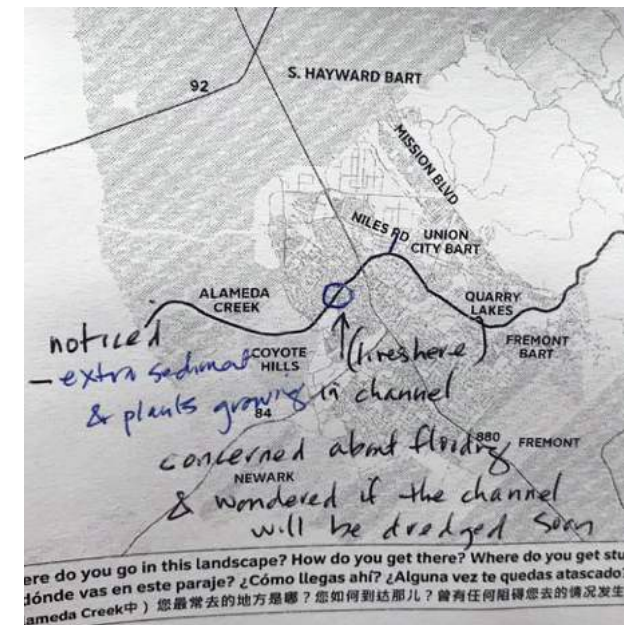 92
S. HAYWARD BART
MISSION BLVD
NILES RD
UNION
CITY BART
ALAMEDA
CREEK
QUARRY
LAKES
FREMONT
BART
COYOTE
HILLS
noticed
(lives here)
- extra sediment
& plants growing in channel
84
concerned about flooding
880
FREMONT
NEWARK
& wondered if the channel
will be dredged soon
ere do you go in this landscape? How do you get there? Where do you get stu
dónde vas en este paraje? ¿Cómo llegas ahí? ¿Alguna vez te quedas atascado?
ameda Creek中）您最常去的地方是哪？您如何到达那儿？曾有任何阻碍您去的情况发生